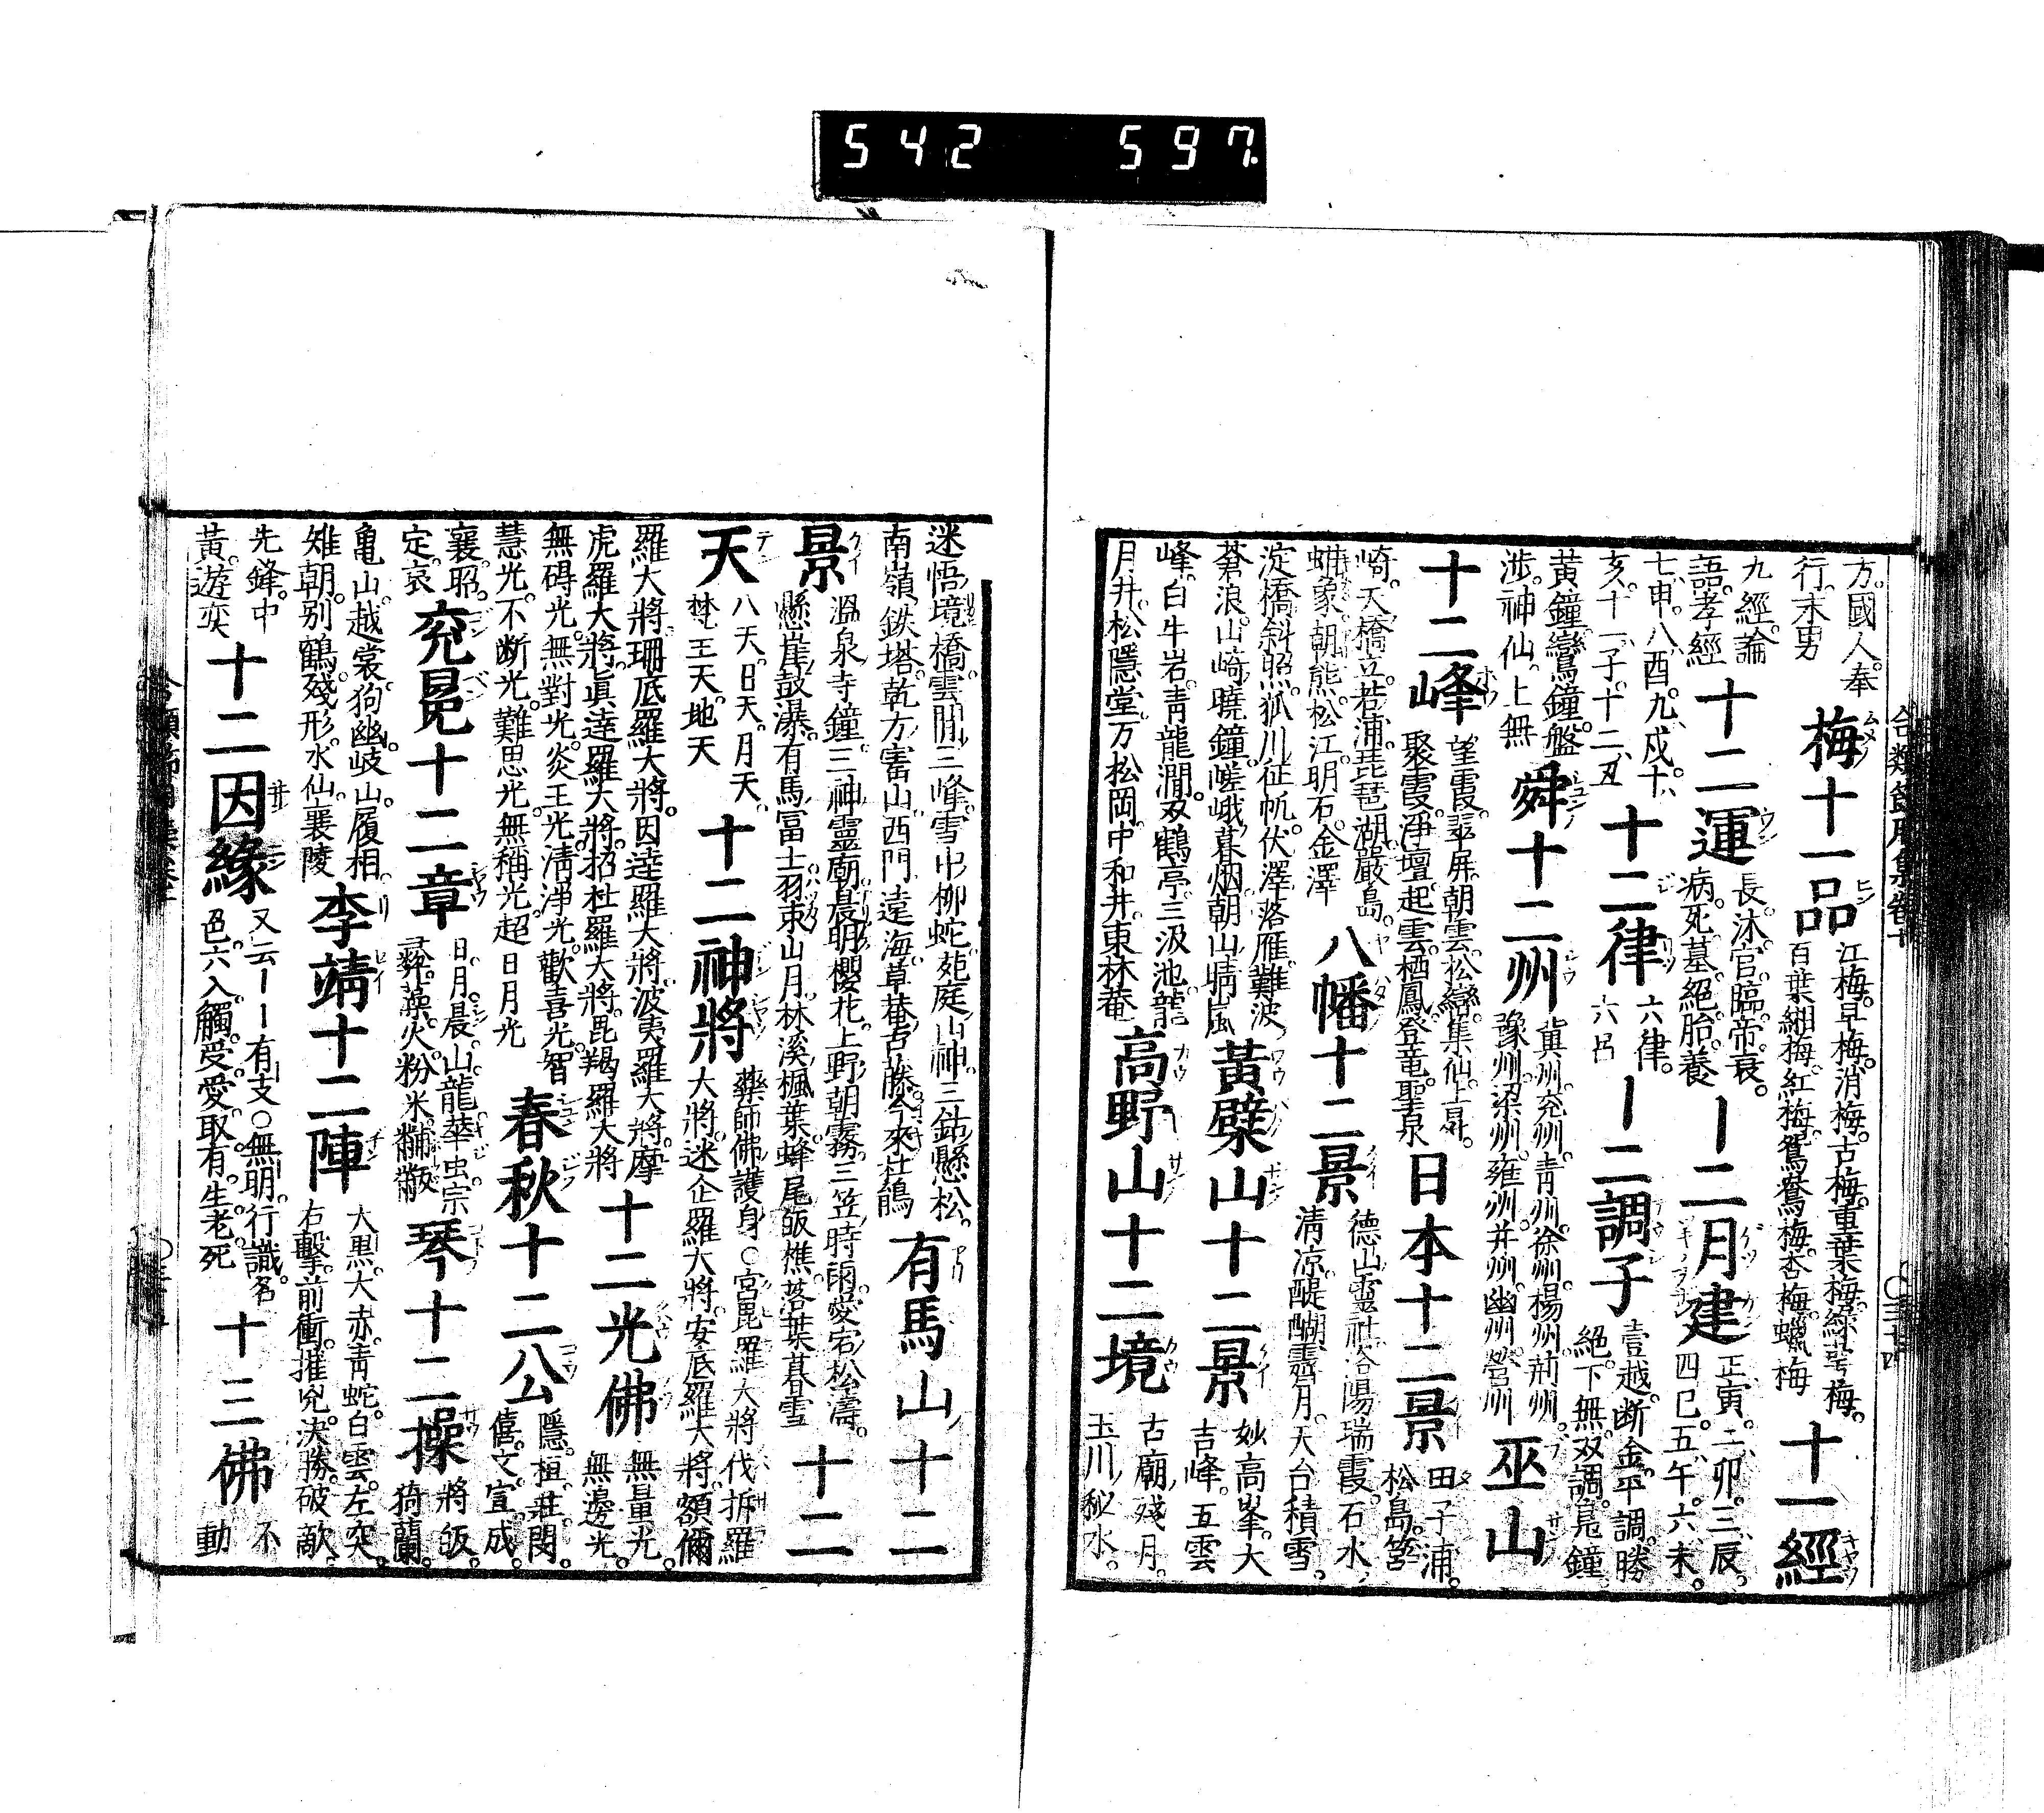 542 597
方。國人。奉
行。末男
梅十一品
江梅。早梅。消梅。古梅。重葉梅。綠萼梅。
百葉緗梅。紅梅。鴛鴦梅。杏梅。蠟梅
十一經
九經。論
語。孝經
十二運
長。沐。官。臨。帝。衰。
病。死。墓。絕。胎。養
〡二月建
正寅。二卯。三辰。
四巳。五午。六未。
七申。八酉。九戌。十
亥。十一子。十二丑
十二律
六律。
六呂
〡二調子
壹越。断金。平調。勝
絕。下無。双調。鳧鐘
黃鐘。鸞鐘。盤
渉。神仙。上無
舜十二州
冀州。兗州。青州。徐州。楊州。荊州。
豫州。梁州。雍州。并州。幽州。營州
巫山
十二峰
望霞。翠屏。朝雲。松巒。集仙。上昇。
聚霞。淨壇。起雲。栖鳳。登竜。聖泉
日本十二景
田子浦。
松島。筥
崎。天橋立。若浦。琵琶湖。嚴島。
蟻象。朝熊。松江。明石。金澤
八幡十二景
德山靈社。洛陽瑞霞。石水
清凉。醍醐霽月。天台積雪。
淀橋斜照。狐川征帆。伏澤落雁。難波
蒼浪。山崎曉鐘。嵯峨暮烟。朝山晴嵐
黃檗山十二景
妙高峯。大
吉峰。五雲
峰。白牛岩。青龍澗。双鶴亭。三汲池。龍
月井。松隱堂。万松岡。中和井。東林菴
高野山十二境
古廟殘月。
玉川秘水。
迷悟境橋。雲間三峰。雪中柳。蛇菀庭。山神。三鈷懸松。
南嶺鉄塔。乾方畜山。西門遠海。草菴
杜鵑
有馬山十二
景
溫泉寺鐘。三神靈廟。晨明櫻花。上野朝霧。三笠時雨。愛宕松濤。
懸崖鼓瀑。有馬冨士。羽束山月。林溪楓葉。蜂尾皈樵。落葉暮雪
十二
天
八天。日天。月天。
梵王天。地天
十二神將
藥師佛護身○宮毘羅大將。伐折羅
大將。迷企羅大將。安底羅大將。額儞
羅大將。珊底羅大將。因達羅大將。波夷羅大將。摩
虎羅大將。眞達羅大將。招杜羅大將。毘羯羅大將
十二光佛
無量光。
無邊光。
無碍光。無對光。炎王光。清淨光。歡喜光。智
慧光。不断光。難思光。無稱光。超日月光
春秋十二公
隱。桓。莊。閔。
僖。文。宣。成。
襄。昭。
定。哀
兗冕十二章
日。月。晨。山。龍。華虫。宗
彛。藻。火。粉米。黼。黻
琴十二操
將皈。
猗蘭。
亀山。越裳。狗幽。岐山。履相
雉朝。別鶴。殘形。水仙。襄陵
李靖十二陣
大黒。大赤。青蛇。白雲。左突。
右擊。前衝。摧兇。決勝。破敵。
先鋒。中
黃。遊奕
十二因緣
又云〡〡有支○無明。行識。名
色。六入。觸。受。愛。取。有。生。老死
十三佛
不
動